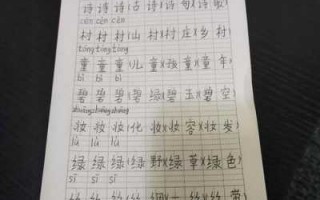 诗 诗 诗(古 诗)(诗 句)(诗 歌)
cūn cūn cūn
村 村 村(山 村)(村 庄)(乡 村)
tóng tóng tóng
童 童 童(儿 童)(孩 童)(童 年)
bì bì
碧 碧 碧(碧 绿)(碧 玉)(碧 空)
zhuāng zhuāng zhuāng
妆 妆 妆(化 妆)(妆 容)(妆 发)
lǜ lǜ
绿 绿 绿(绿 野)(绿 草)(绿 色)
sī sī
丝 丝 丝(
丝)(丝 带)